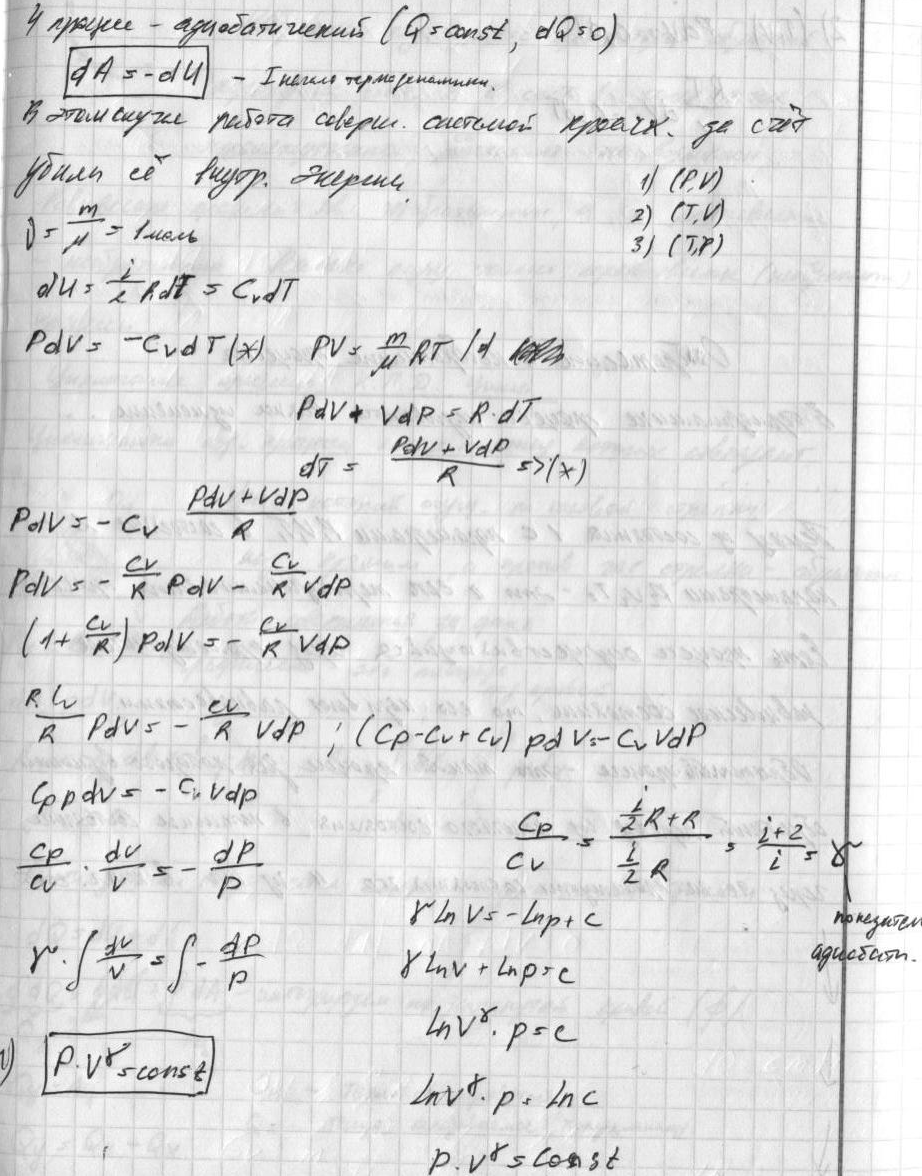 4 процесс - адиабатический (Q=const, dQ=0)
dA = -dU - I начало термодинамики.
В этом случае работа соверш. системой происх. за счёт
убыли её внутр. энергии
1) (P,V)
ν = m/μ = 1 моль
2) (T,V)
3) (T,P)
dU = i/2 RdT = CvdT
PdV = -CvdT (*) PV = m/μ RT /d
PdV + VdP = R·dT
dT = (PdV + VdP)/R => (*)
PdV = - Cv (PdV + VdP)/R
PdV = - Cv/R PdV - Cv/R VdP
(1 + Cv/R) PdV = - Cv/R VdP
R Cv/R PdV = - Cv/R VdP ; (Cp - Cv + Cv) pdV = - Cv VdP
Cp pdV = - Cv Vdp
Cp/Cv = (i/2 R + R)/(i/2 R) = (i+2)/i = γ
Cp/Cv · dV/V = - dP/P
показатель
адиабаты.
γ ln V = - ln p + c
γ · ∫ dV/V = ∫ - dP/P
γ ln V + ln p = c
ln V^γ · p = c
1) P·V^γ = const
ln V^γ · p = ln c
p·V^γ = const